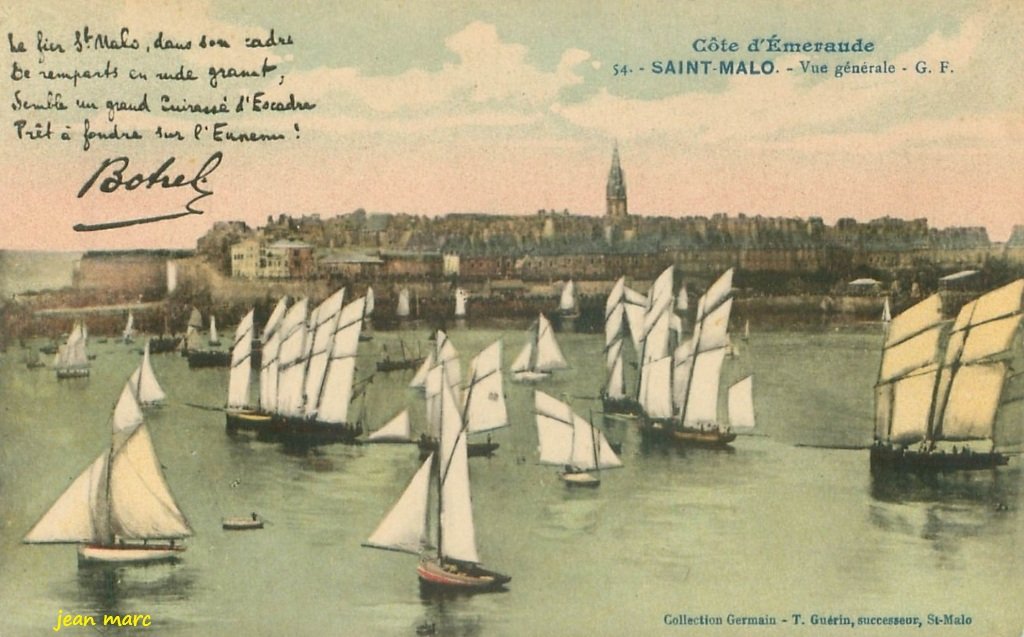 Le fier St Malo, dans son cadre
De remparts en rude granit,
Semble un grand Cuirassé d'Escadre
Prêt à fondre sur l'Ennemi !
Botrel
Côte d'Émeraude
54. - SAINT-MALO. - Vue générale - G. F.
jean marc
Collection Germain - T. Guérin, successeur, St-Malo